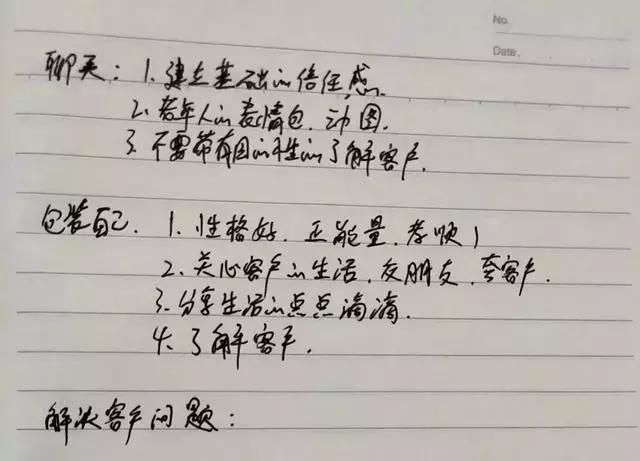 No.
Date.
聊天：1. 建立基础的信任感.
2. 老年人的表情包. 动图.
3. 不要带有目的性的了解客户.
包装自己. 1. 性格好. 正能量. 孝顺！
2. 关心客户的生活. 交朋友. 夸客户.
3. 分享生活的点点滴滴.
4. 了解客户.
解决客户问题：